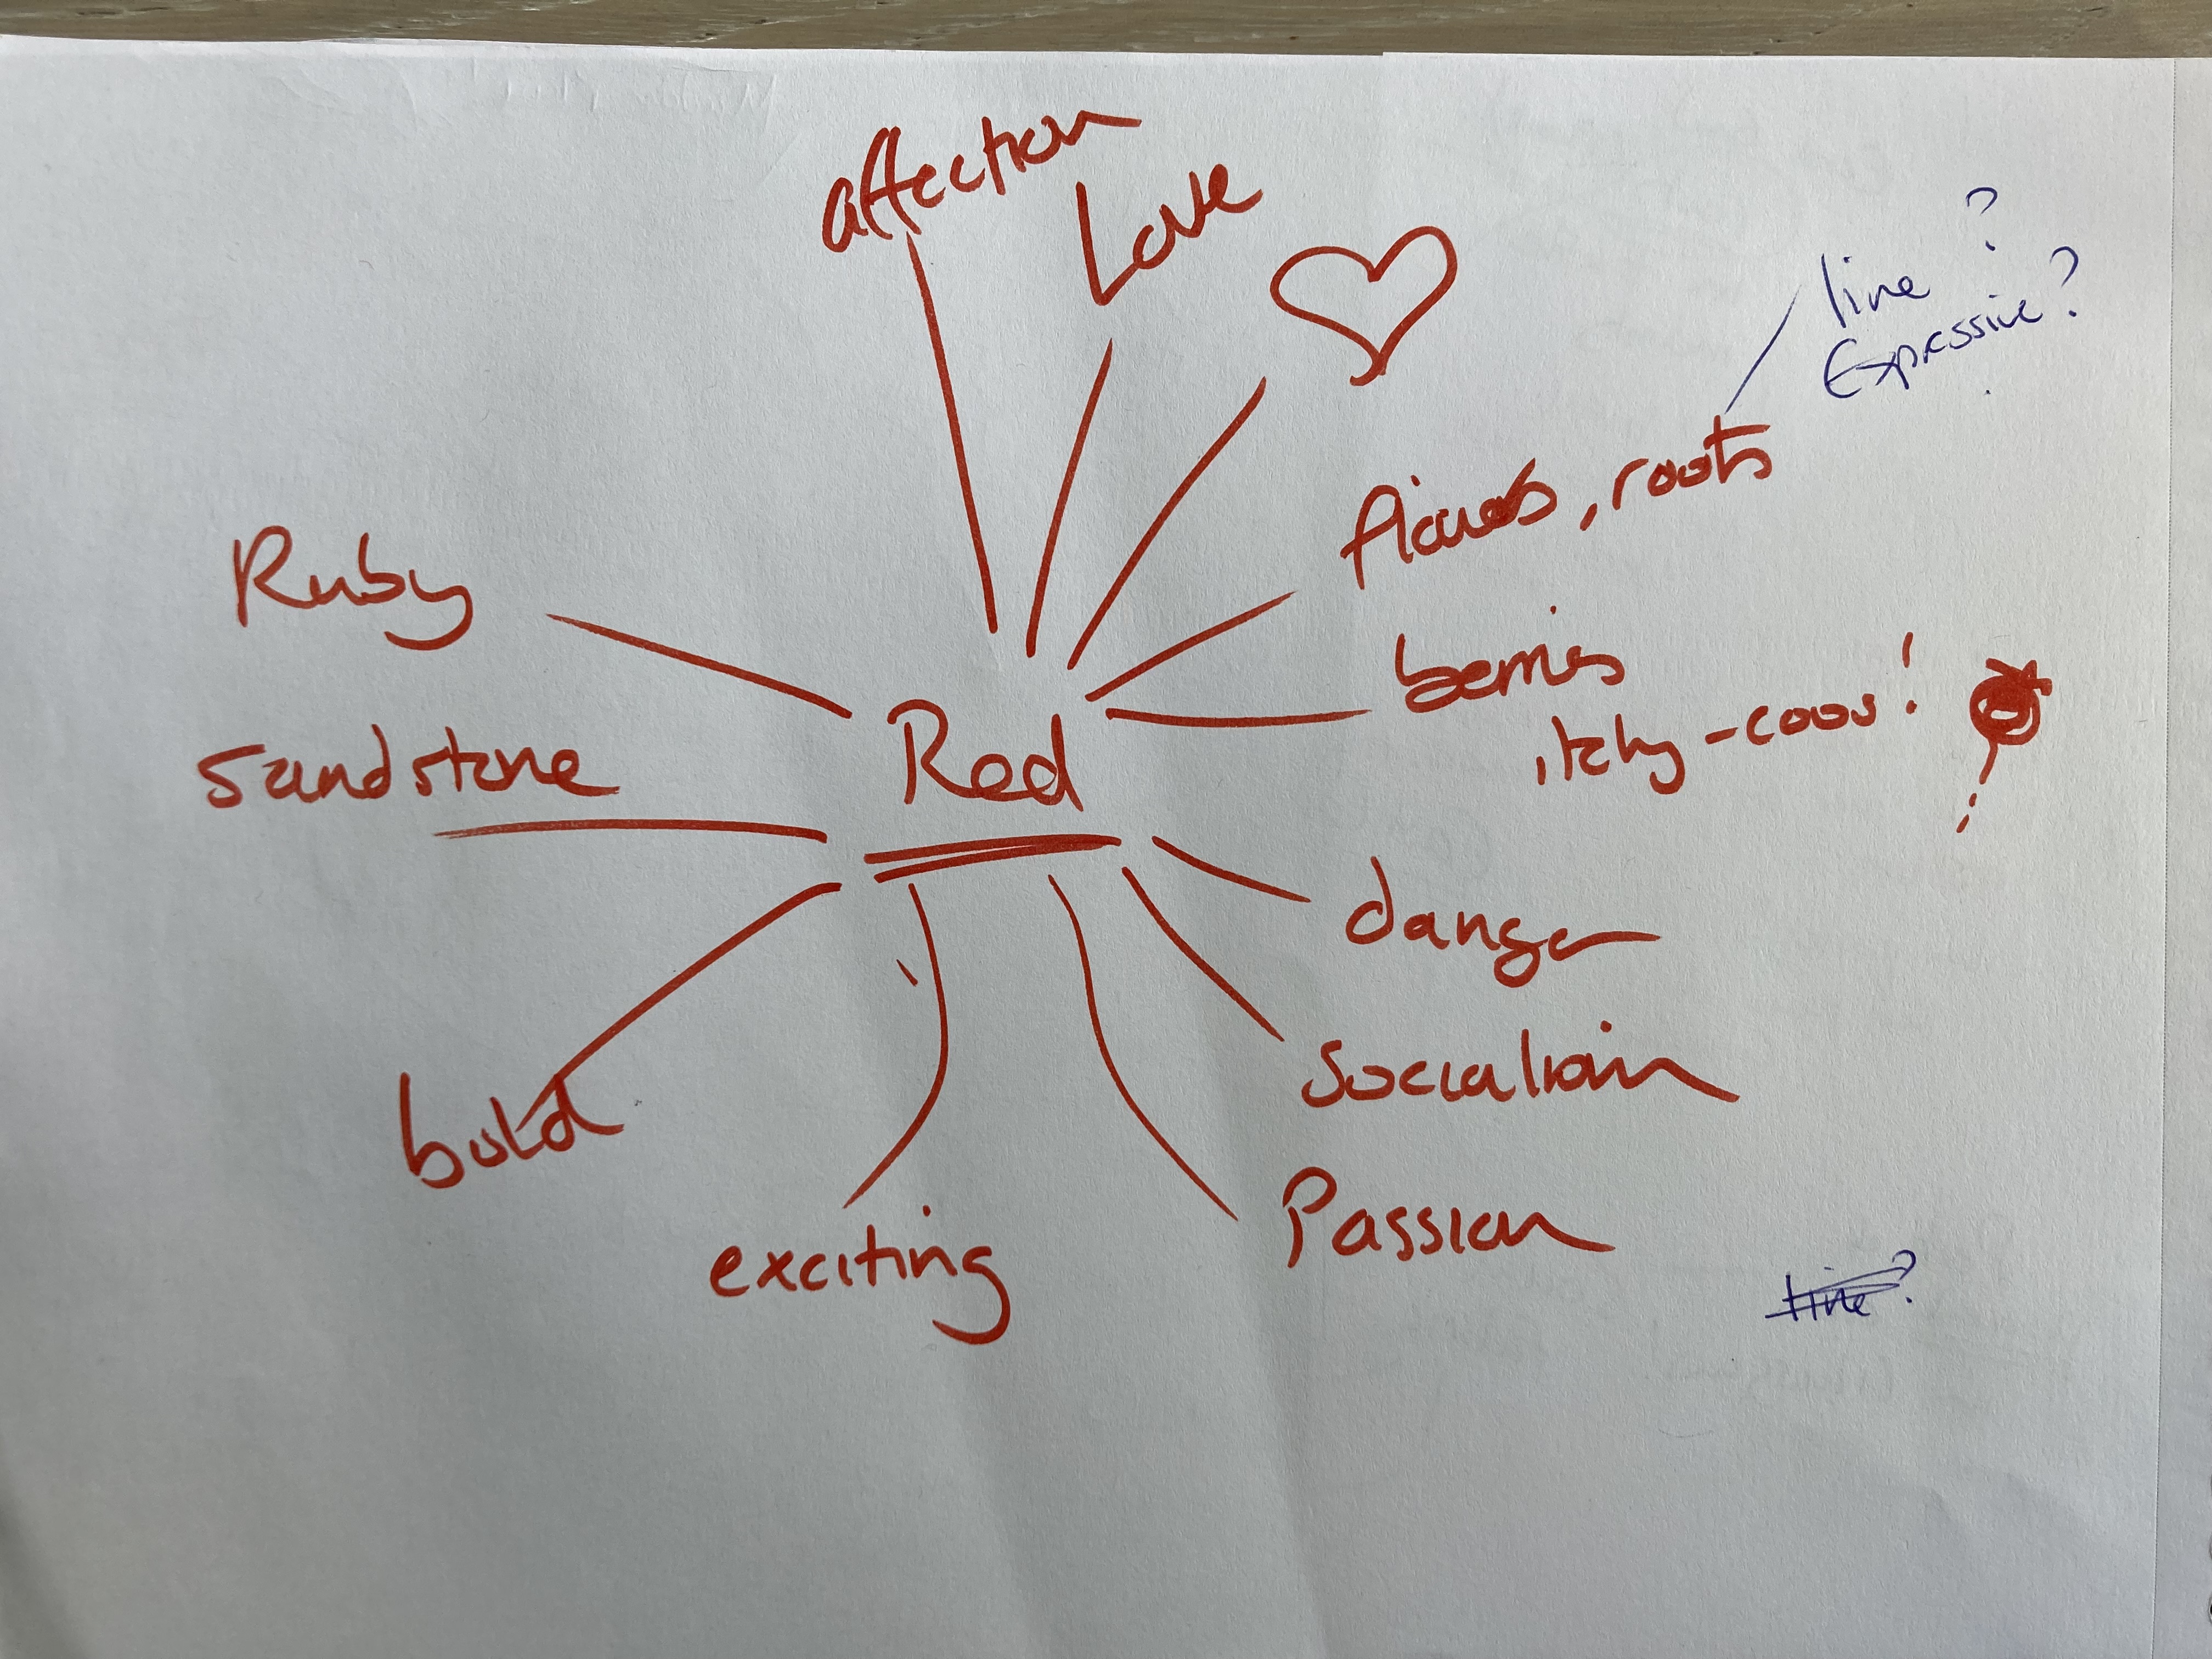 affection
Love
line ?
Expressive?
flowers, roots
Ruby
berries
itchy-coos!
Sandstone
Red
danger
Socialism
bold
Passion
exciting
line?